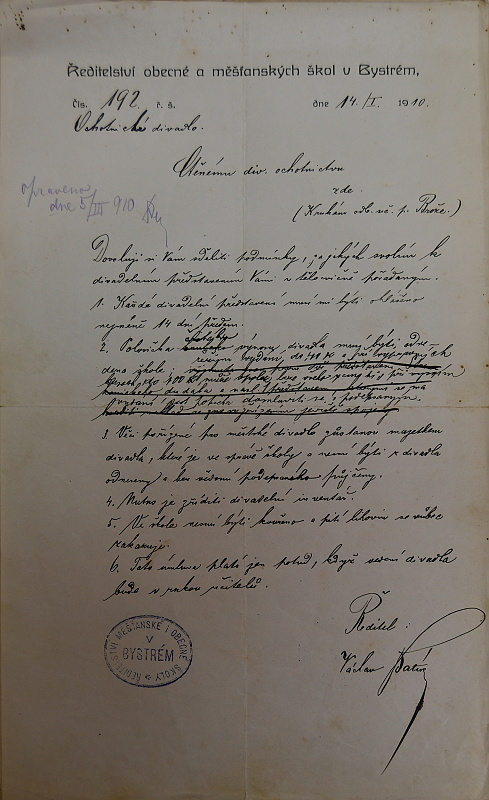 Ředitelství obecné a měšťanských škol v Bystrém,
čís. 192 ř. š.
dne 14./I. 1910.
Ochotnické divadlo.
opraveno
dne 5/III 910
Ctěnému div. ochotnictvu
zde.
(K rukám odb. uč. p. Brože.)
Dovoluji si Vám sděliti podmínky, za jakých svolím k
divadelním představením Vámi v tělocvičně pořádaným.
1. Každé divadelní představení musí mi býti ohlášeno
nejméně 14 dní předem.
2. Polovička výnosu divadla musí býti ode-
dána škole,
3. Věci pořízené pro městské divadlo zůstanou majetkem
divadla, které je ve správě školy a nesmí býti z divadla
odneseny a bez vědomí podepsaného půjčeny.
4. Nutno je zříditi divadelní inventář.
5. Ve škole nesmí býti kouřeno a pití lihovin se vůbec
zakazuje.
6. Tato úmluva platí jen potud, když vedení divadla
bude v rukou učitelů.
Ředitel:
Václav
ŘEDITELSTVÍ MĚŠŤANSKÉ I OBECNÉ ŠKOLY
V
BYSTRÉM